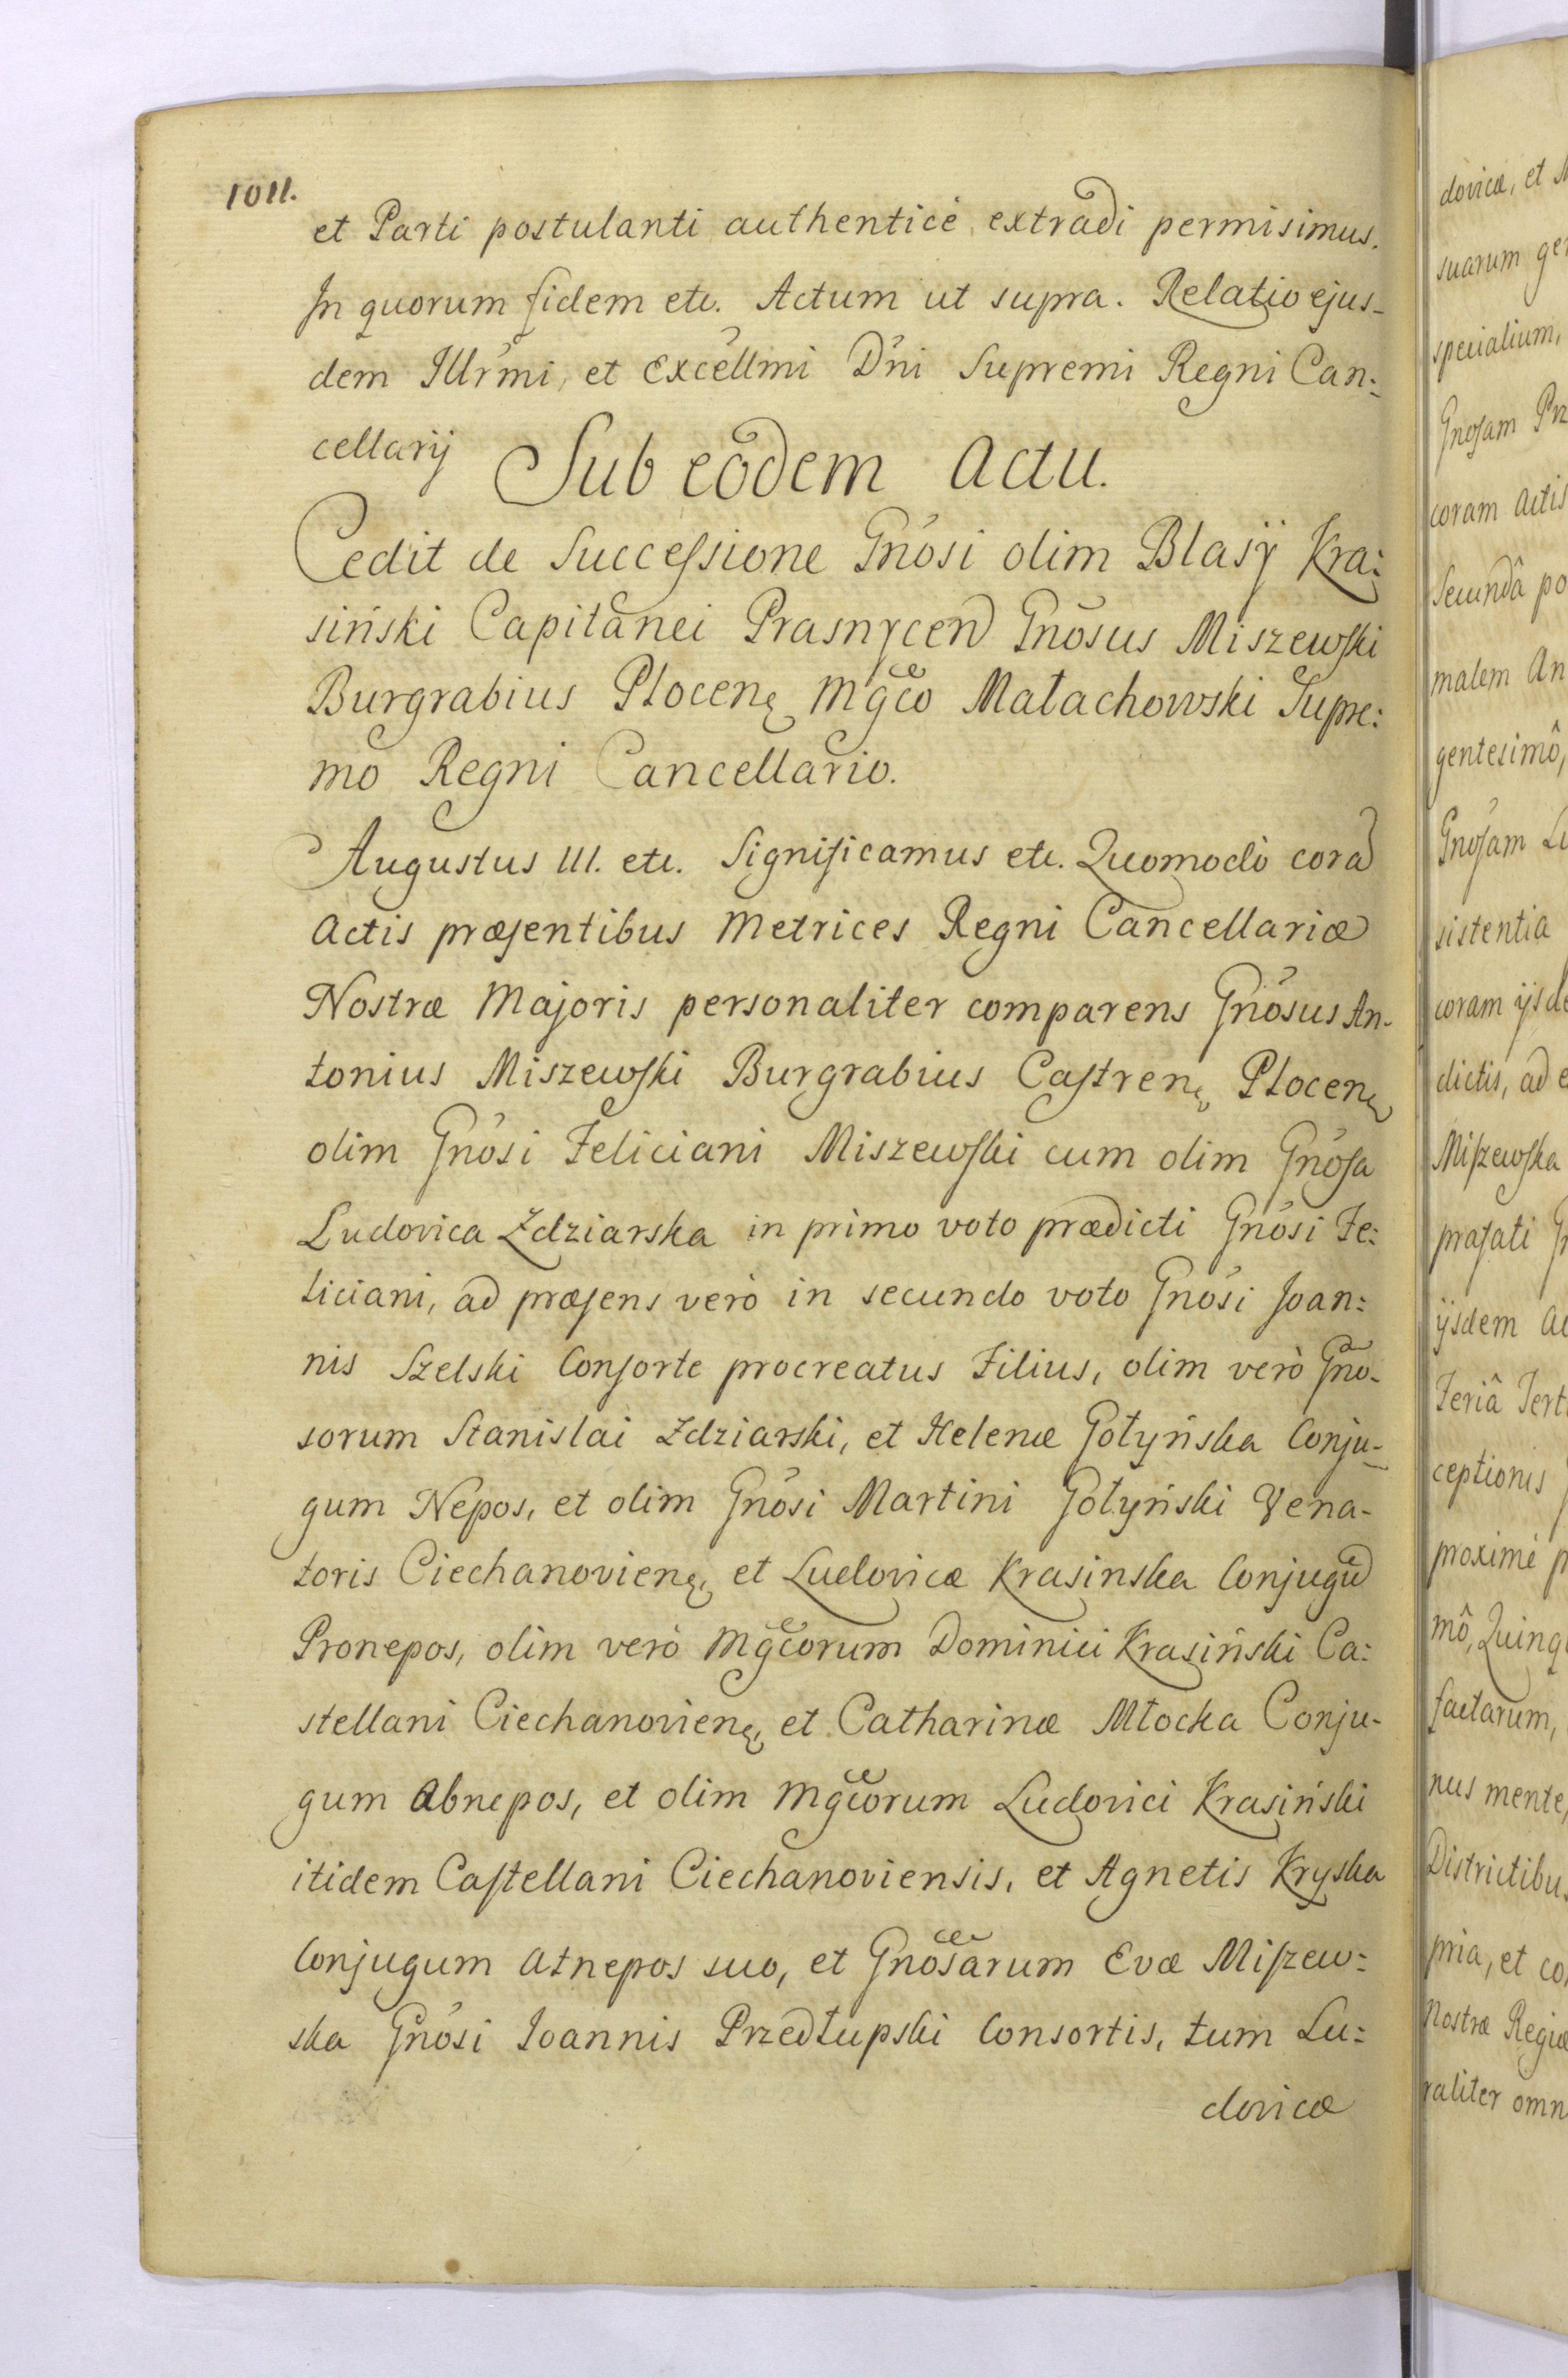 1011.
et Parti postulanti authenticè extradi permisimus.
In quorum fidem etc. Actum ut supra. Relatio ejus-
dem Illrm̃i, et Excellm̃i Dñi Supremi Regni Can:
cellarij
Sub eodem Actu.
Cedit de Successione Gnõsi olim Blasÿ Kra:
siński Capitanei Prasnycen Gnõsus Miszewski
Burgrabius Płocenę Mgc̃o Małachowski Supre:
mo Regni Cancellario.
Augustus III. etc. Significamus etc. Quomodò cora
Actis præsentibus Metrices Regni Cancellariæ
Nostræ Majoris personaliter comparens Gnõsus An-
tonius Miszewski Burgrabius Castrenę Płocenę
olim Gnõsi Feliciani Miszewski cum olim Gnõsa
Ludovica Zdziarska in primo voto prædicti Gnõsi Fe:
liciani, ad præsens verò in secundo voto Gnõsi Joan:
nis Szelski Consorte procreatus Filius, olim verò Gnõ-
sorum Stanislai Zdziarski, et Helenæ Gołyńska Conju-
gum Nepos, et olim Gnõsi Martini Gołyński Vena-
toris Ciechanovienę, et Ludovicæ Krasinska Conjugũ
Pronepos, olim verò Mgc̃orum Dominici Krasiński Ca:
stellani Ciechanovienę, et Catharinæ Młocka Conju-
gum Abnepos, et olim Mgc̃orum Ludovici Krasiński
itidem Castellani Ciechanoviensis, et Agnetis Kryska
Conjugum Atnepos suo, et Gnõsarum Evæ Miszew:
ska Gnõsi Joannis Przedłupski Consortis, tum Lu:
dovicæ
dovicæ, et
suarum
specialium,
Gnosam
coram Actis
Secundâ
malem
gentesimô,
Gnosam
sistentia
coram ijsde
dictis, ad
Miszewska
præfati
ijsdem
Feriâ
ceptionis
proximè
mô,
factarum,
nus mente,
Districtibus
pria, et
Nostræ Regiæ
raliter